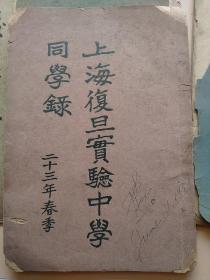 上海復旦實驗中學
同學錄
二十三年春季